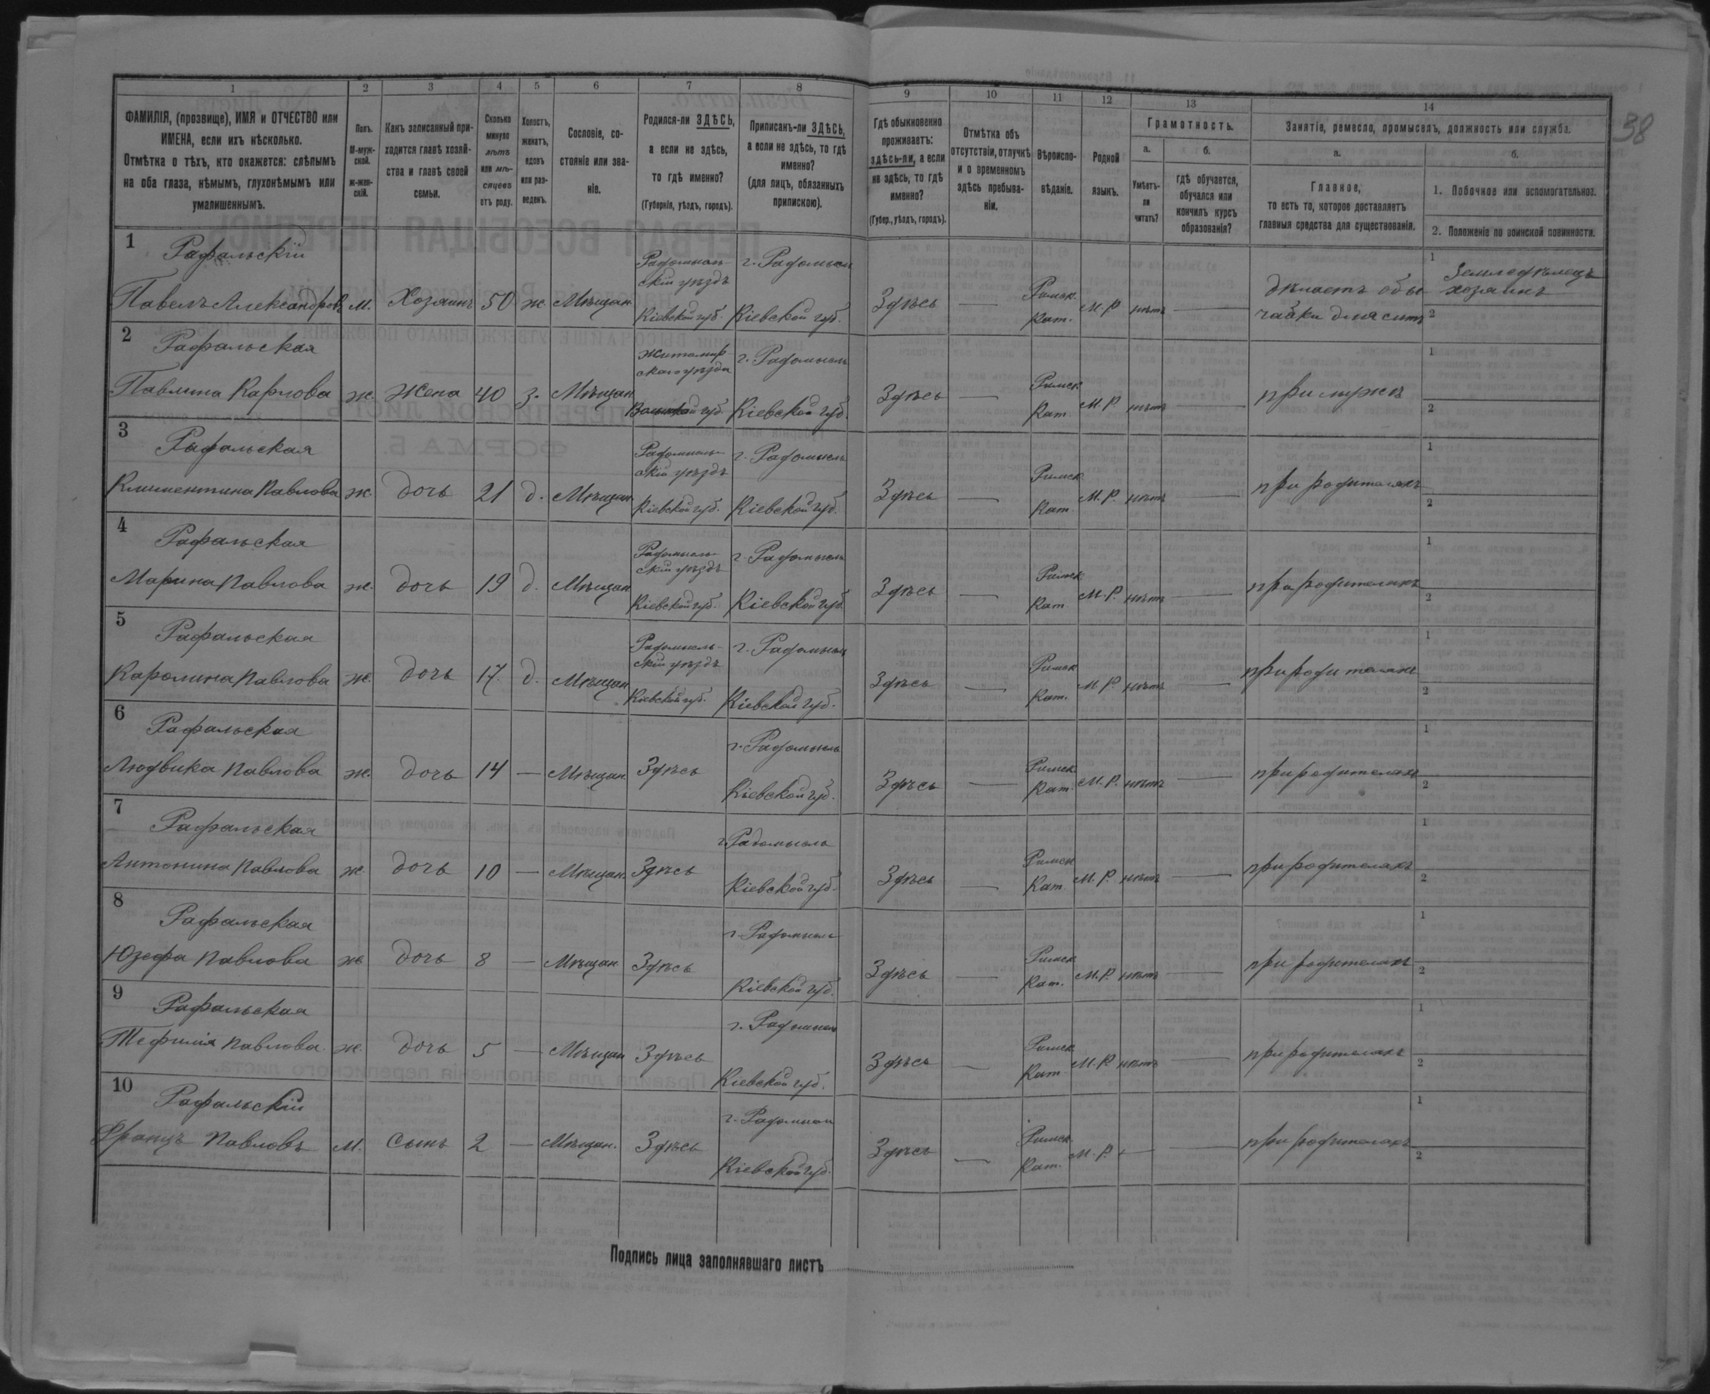 38
1 2 3 4 5 6 7 8 9 10 11 12 13 14
ФАМИЛІЯ, (прозвище), ИМЯ и ОТЧЕСТВО или
ИМЕНА, если ихъ нѣсколько.
Отмѣтка о тѣхъ, кто окажется: слѣпымъ
на оба глаза, нѣмымъ, глухонѣмымъ или
умалишеннымъ.
Полъ.
М-муж-
ской.
ж-жен-
скій.
Какъ записанный при-
ходится главѣ хозяй-
ства и главѣ своей
семьи.
Сколько
минуло
лѣтъ
или мѣ-
сяцевъ
отъ роду.
Холостъ,
женатъ,
вдовъ
или раз-
веденъ.
Сословіе, со-
стояніе или зва-
ніе.
Родился-ли ЗДѢСЬ,
а если не здѣсь,
то гдѣ именно?
(Губернія, уѣздъ, городъ).
Приписанъ-ли ЗДѢСЬ,
а если не здѣсь, то гдѣ
именно?
(для лицъ, обязанныхъ
припискою).
Гдѣ обыкновенно
проживаетъ:
здѣсь-ли, а если
не здѣсь, то гдѣ
именно?
(Губер., уѣздъ, городъ).
Отмѣтка объ
отсутствіи, отлучкѣ
и о временномъ
здѣсь пребыва-
ніи.
Вѣроиспо-
вѣданіе.
Родной
языкъ.
Грамотность.
а.
Умѣетъ-
ли
читать?
б.
гдѣ обучается,
обучался или
кончилъ курсъ
образованія?
Занятіе, ремесло, промыселъ, должность или служба.
а.
Главное,
то есть то, которое доставляетъ
главныя средства для существованія.
б.
1. Побочное или вспомогательное.
2. Положеніе по воинской повинности.
1 Рафальскій
Павелъ Александровъ М. Хозяинъ 50 ж Мѣщан. Радомысль-
скій уѣздъ
Кіевской губ. г. Радомысль
Кіевской губ. Здѣсь — Римск.
Кат. М.Р. нѣтъ — дѣлаетъ обы
чайки для ситъ 1 Земледѣлецъ
хозяинъ
2
2 Рафальская
Павлина Карлова ж. Жена 40 з. Мѣщан. Житомир
скаго уѣзда
Волынской губ. г. Радомысль
Кіевской губ. Здѣсь — Римск
Кат. М.Р. нѣтъ — при мужѣ 1
2
3 Рафальская
Климентина Павлова ж. дочь 21 д. Мѣщан Радомысль-
скій уѣздъ
Кіевской губ. г. Радомысль
Кіевской губ. Здѣсь — Римск
Кат М.Р. нѣтъ — при родителяхъ 1
2
4 Рафальская
Марина Павлова ж. дочь 19 д. Мѣщан Радомысль-
скій уѣздъ
Кіевской губ. г. Радомысль
Кіевской губ. Здѣсь — Римск
Кат М.Р. нѣтъ — при родителяхъ 1
2
5 Рафальская
Каролина Павлова ж. дочь 17 д. Мѣщан Радомысль-
скій уѣздъ
Кіевской губ. г. Радомысль
Кіевской губ. Здѣсь — Римск
Кат. М.Р. нѣтъ — при родителяхъ 1
2
6 Рафальская
Людвика Павлова ж. дочь 14 — Мѣщан Здѣсь г. Радомысль
Кіевской губ. Здѣсь — Римск
Кат. М.Р. нѣтъ — при родителяхъ 1
2
7 Рафальская
Антонина Павлова ж. дочь 10 — Мѣщан. Здѣсь г. Радомысль
Кіевской губ. Здѣсь — Римск
Кат. М.Р. нѣтъ — при родителяхъ 1
2
8 Рафальская
Юзефа Павлова ж. дочь 8 — Мѣщан Здѣсь г. Радомысль
Кіевской губ. Здѣсь — Римск
Кат. М.Р. нѣтъ — при родителяхъ 1
2
9 Рафальская
Теофилія Павлова ж. дочь 5 — Мѣщан Здѣсь г. Радомысль
Кіевской губ. Здѣсь — Римск
Кат М.Р. нѣтъ — при родителяхъ 1
2
10 Рафальскій
Францъ Павловъ М. сынъ 2 — Мѣщан. Здѣсь г. Радомысль
Кіевской губ. Здѣсь — Римск.
Кат. М.Р. — — при родителяхъ 1
2
Подпись лица заполнявшаго листъ